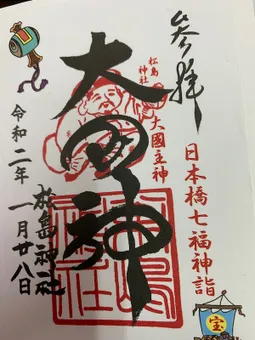 参拝
日本橋七福神詣
松島神社
大國主神
大国神
松島神社
令和二年 一月廿八日
宝